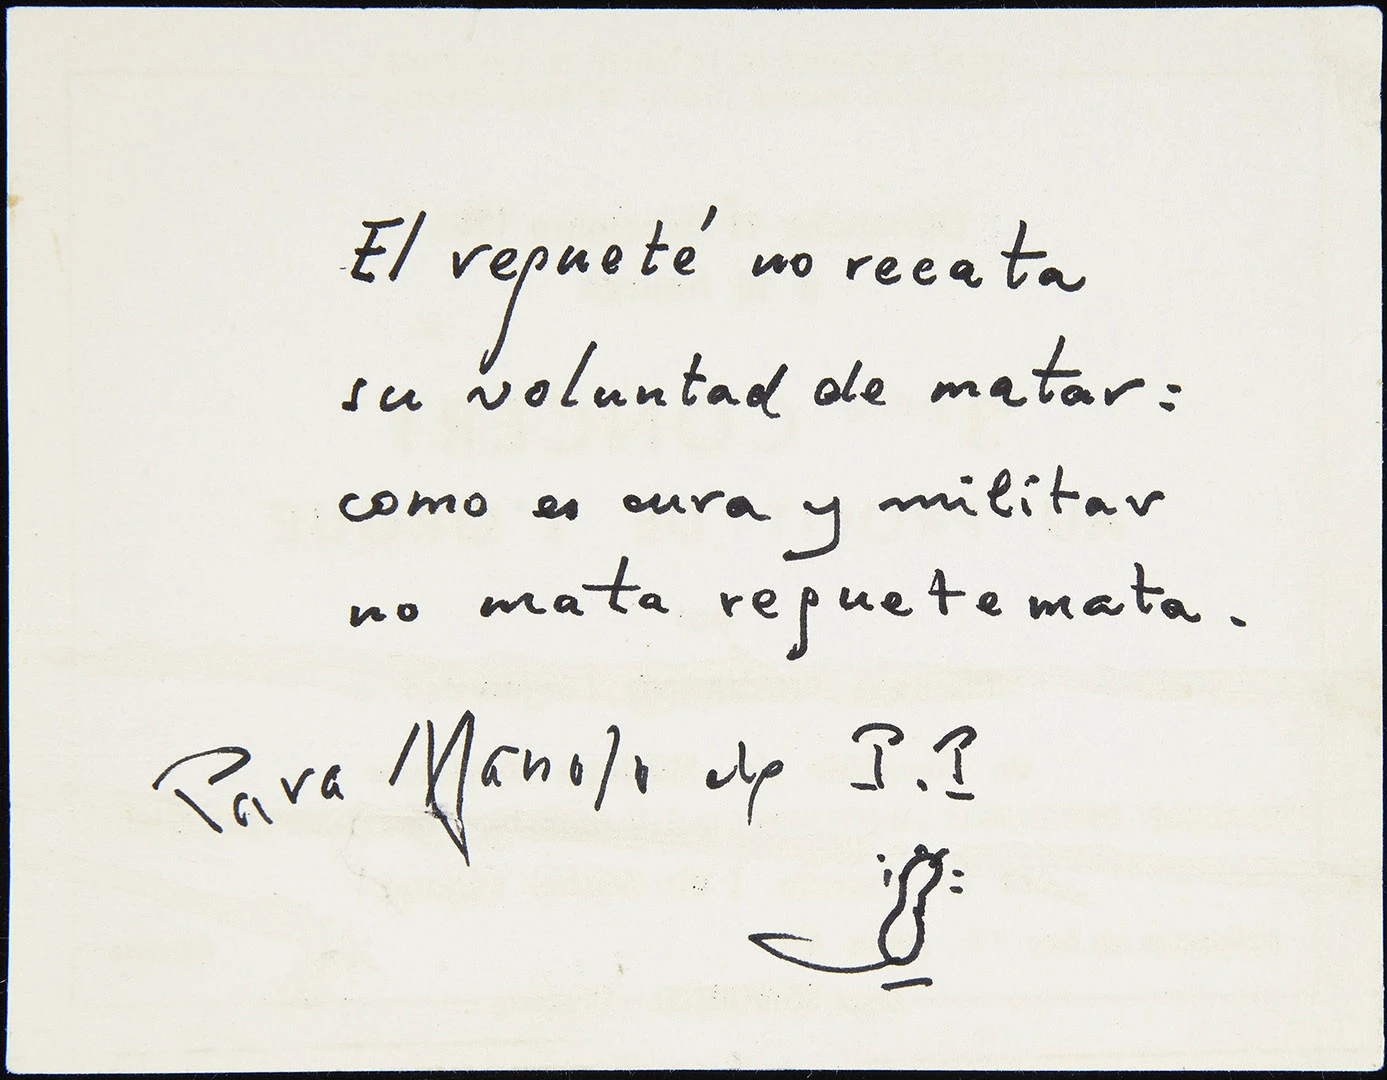 El requeté no recata
su voluntad de matar:
como es cura y militar
no mata requetemata.
Para Manolo de P.P